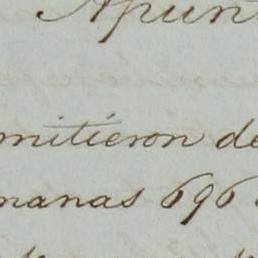 Apunt
mitieron de
manas 696